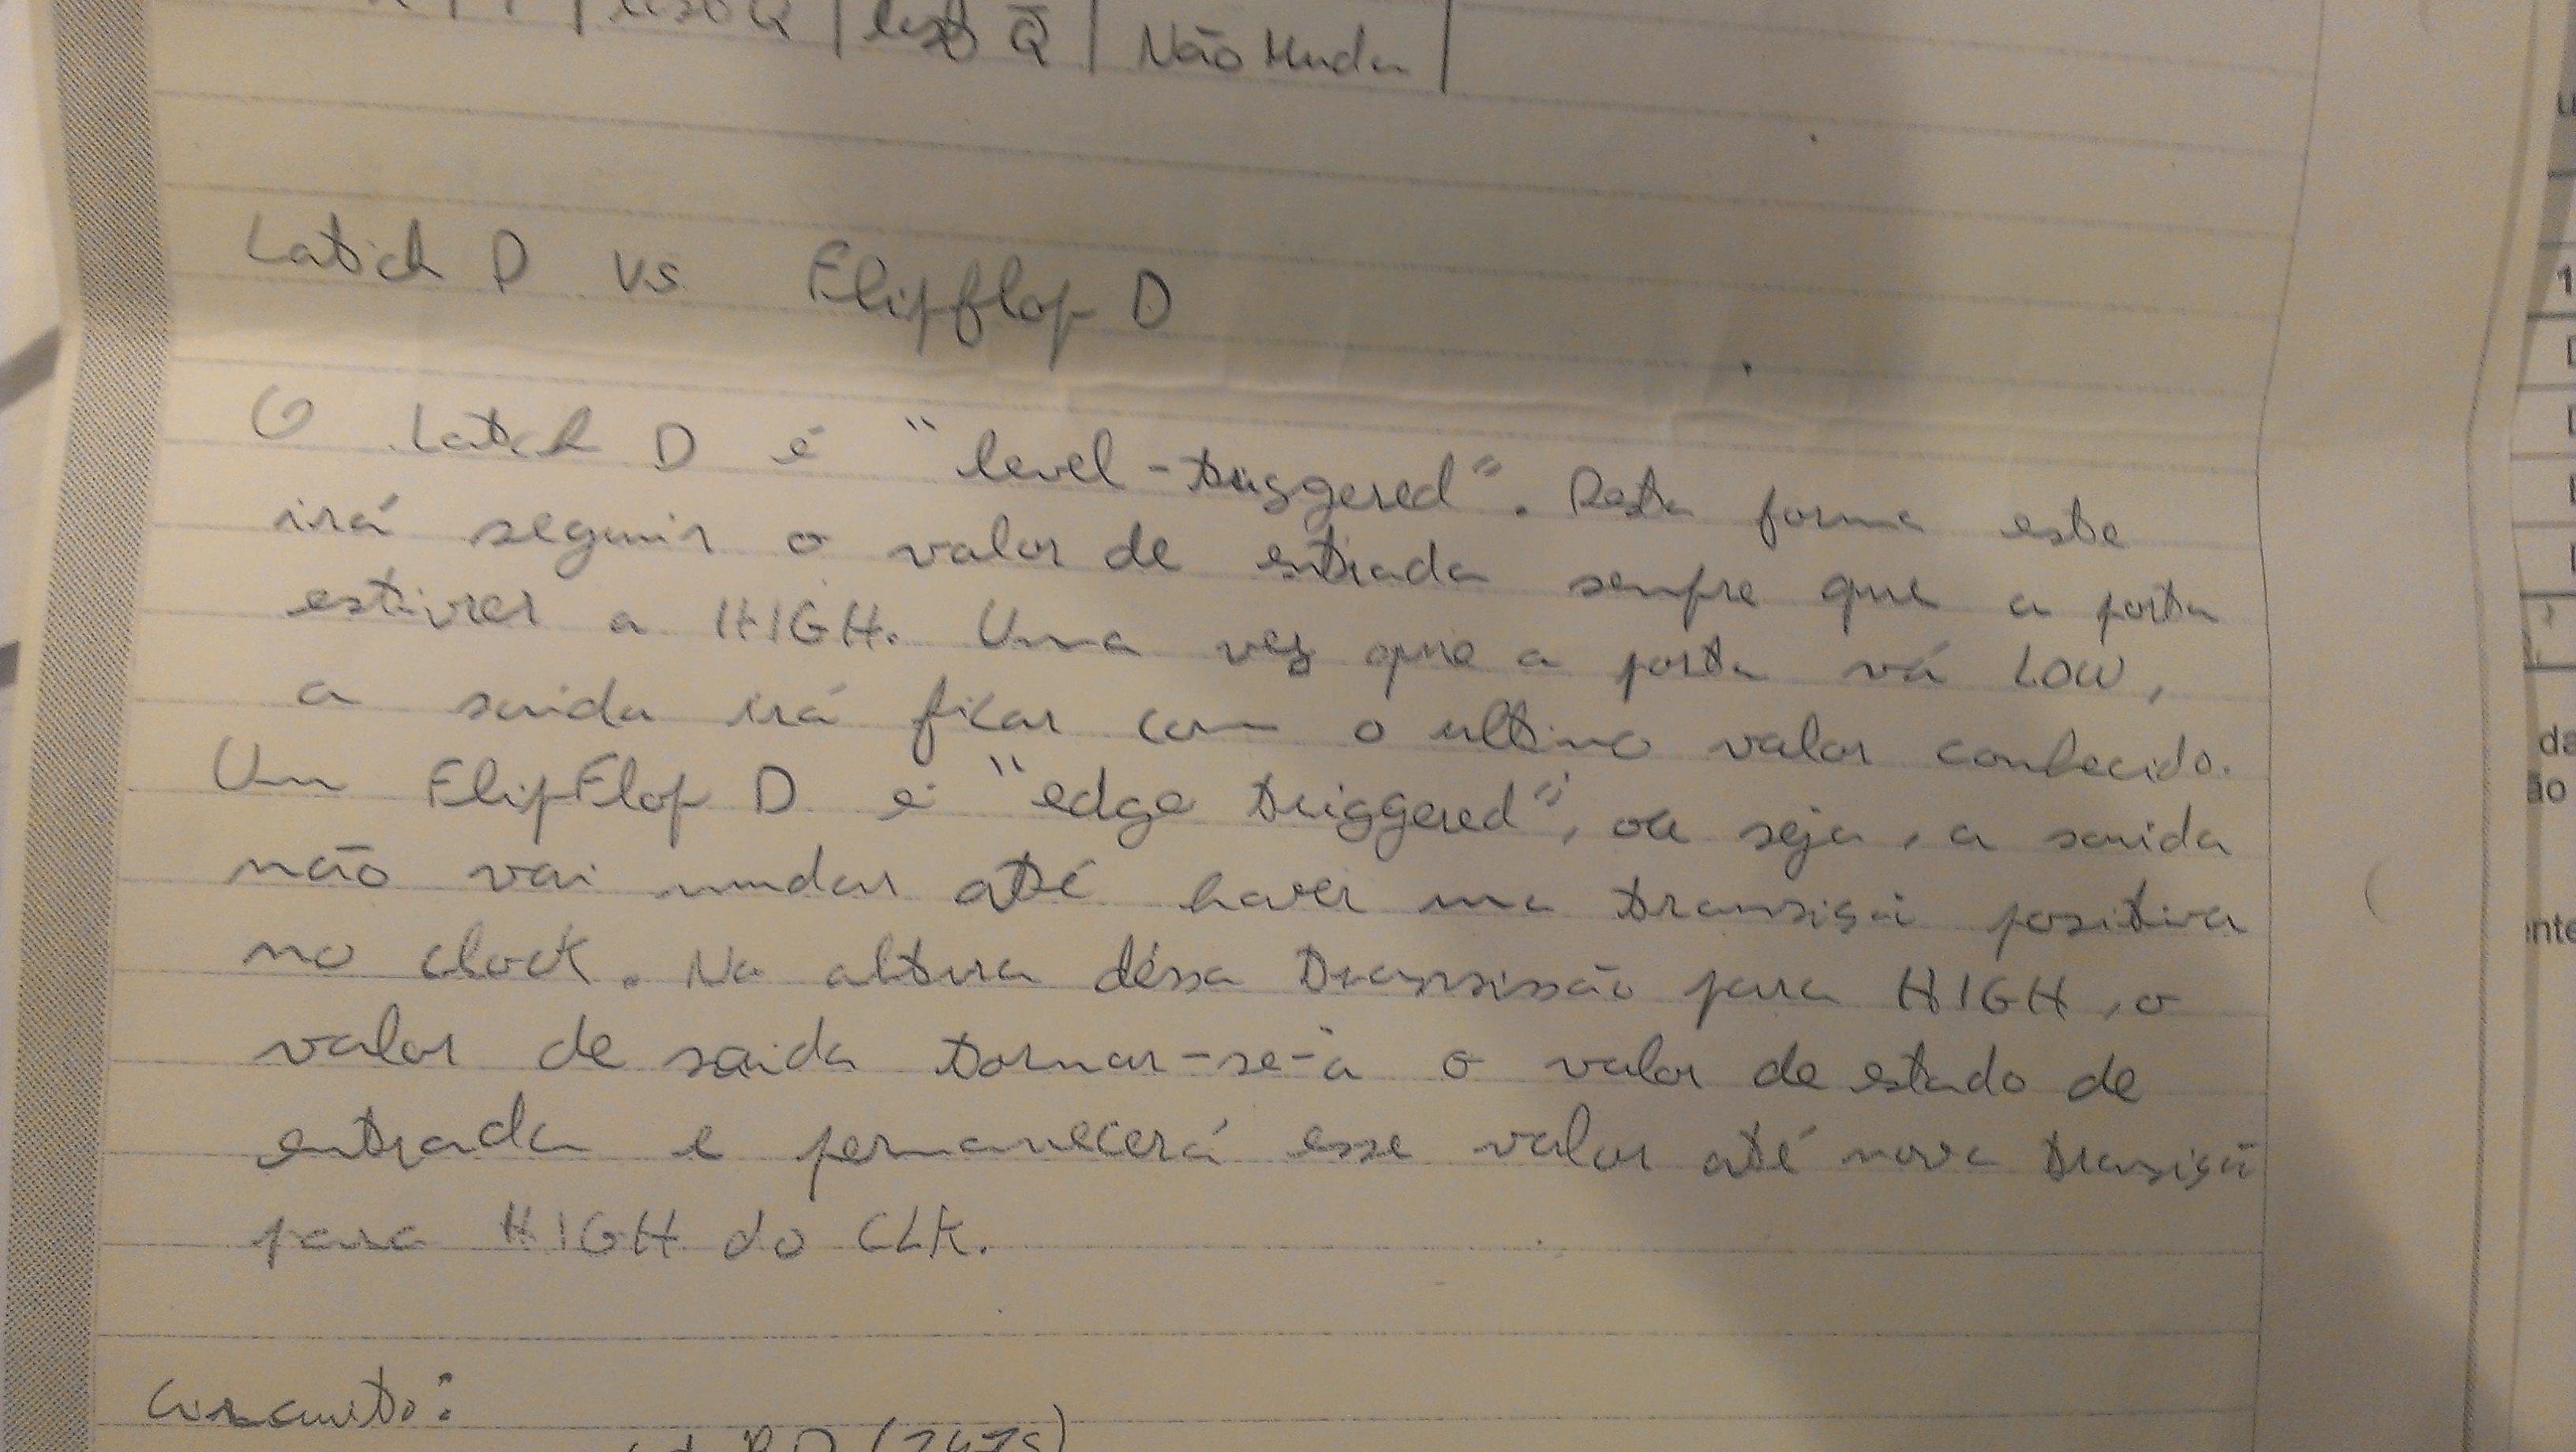 Q | Q̅ | Não Muda |
Latch D vs Flipflop D
O Latch D é "level-triggered". Desta forma este
irá seguir o valor de entrada sempre que a porta
estiver a HIGH. Uma vez que a porta vá LOW,
a saida irá ficar com o ultimo valor conhecido.
Um FlipFlop D é "edge triggered", ou seja, a saida
não vai mudar até haver uma transição positiva
no clock. Na altura dessa transissão para HIGH, o
valor de saida tornar-se-à o valor de estado de
entrada e permanecerá esse valor até nova transição
para HIGH do CLK.
Circuito:
1
da
ão
nte